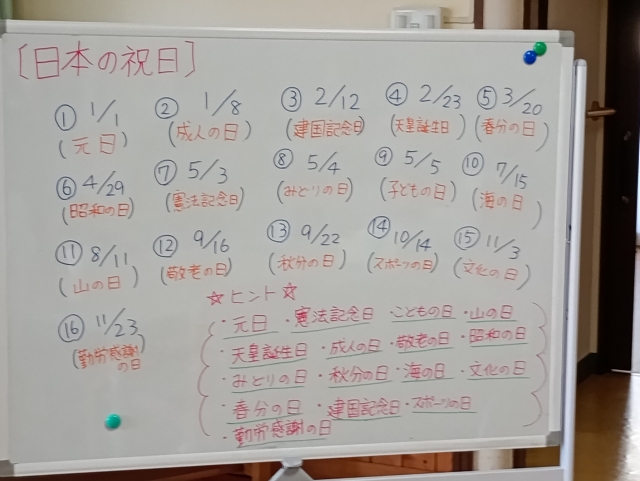 〔日本の祝日〕
① 1/1 ② 1/8 ③ 2/12 ④ 2/23 ⑤ 3/20
(元日) (成人の日) (建国記念日) (天皇誕生日) (春分の日)
⑥ 4/29 ⑦ 5/3 ⑧ 5/4 ⑨ 5/5 ⑩ 7/15
(昭和の日) (憲法記念日) (みどりの日) (子どもの日) (海の日)
⑪ 8/11 ⑫ 9/16 ⑬ 9/22 ⑭ 10/14 ⑮ 11/3
(山の日) (敬老の日) (秋分の日) (スポーツの日) (文化の日)
⑯ 11/23
(勤労感謝
の日)
☆ヒント☆
・元日 ・憲法記念日 ・こどもの日 ・山の日
・天皇誕生日 ・成人の日 ・敬老の日 ・昭和の日
・みどりの日 ・秋分の日 ・海の日 ・文化の日
・春分の日 ・建国記念日 ・スポーツの日
・勤労感謝の日